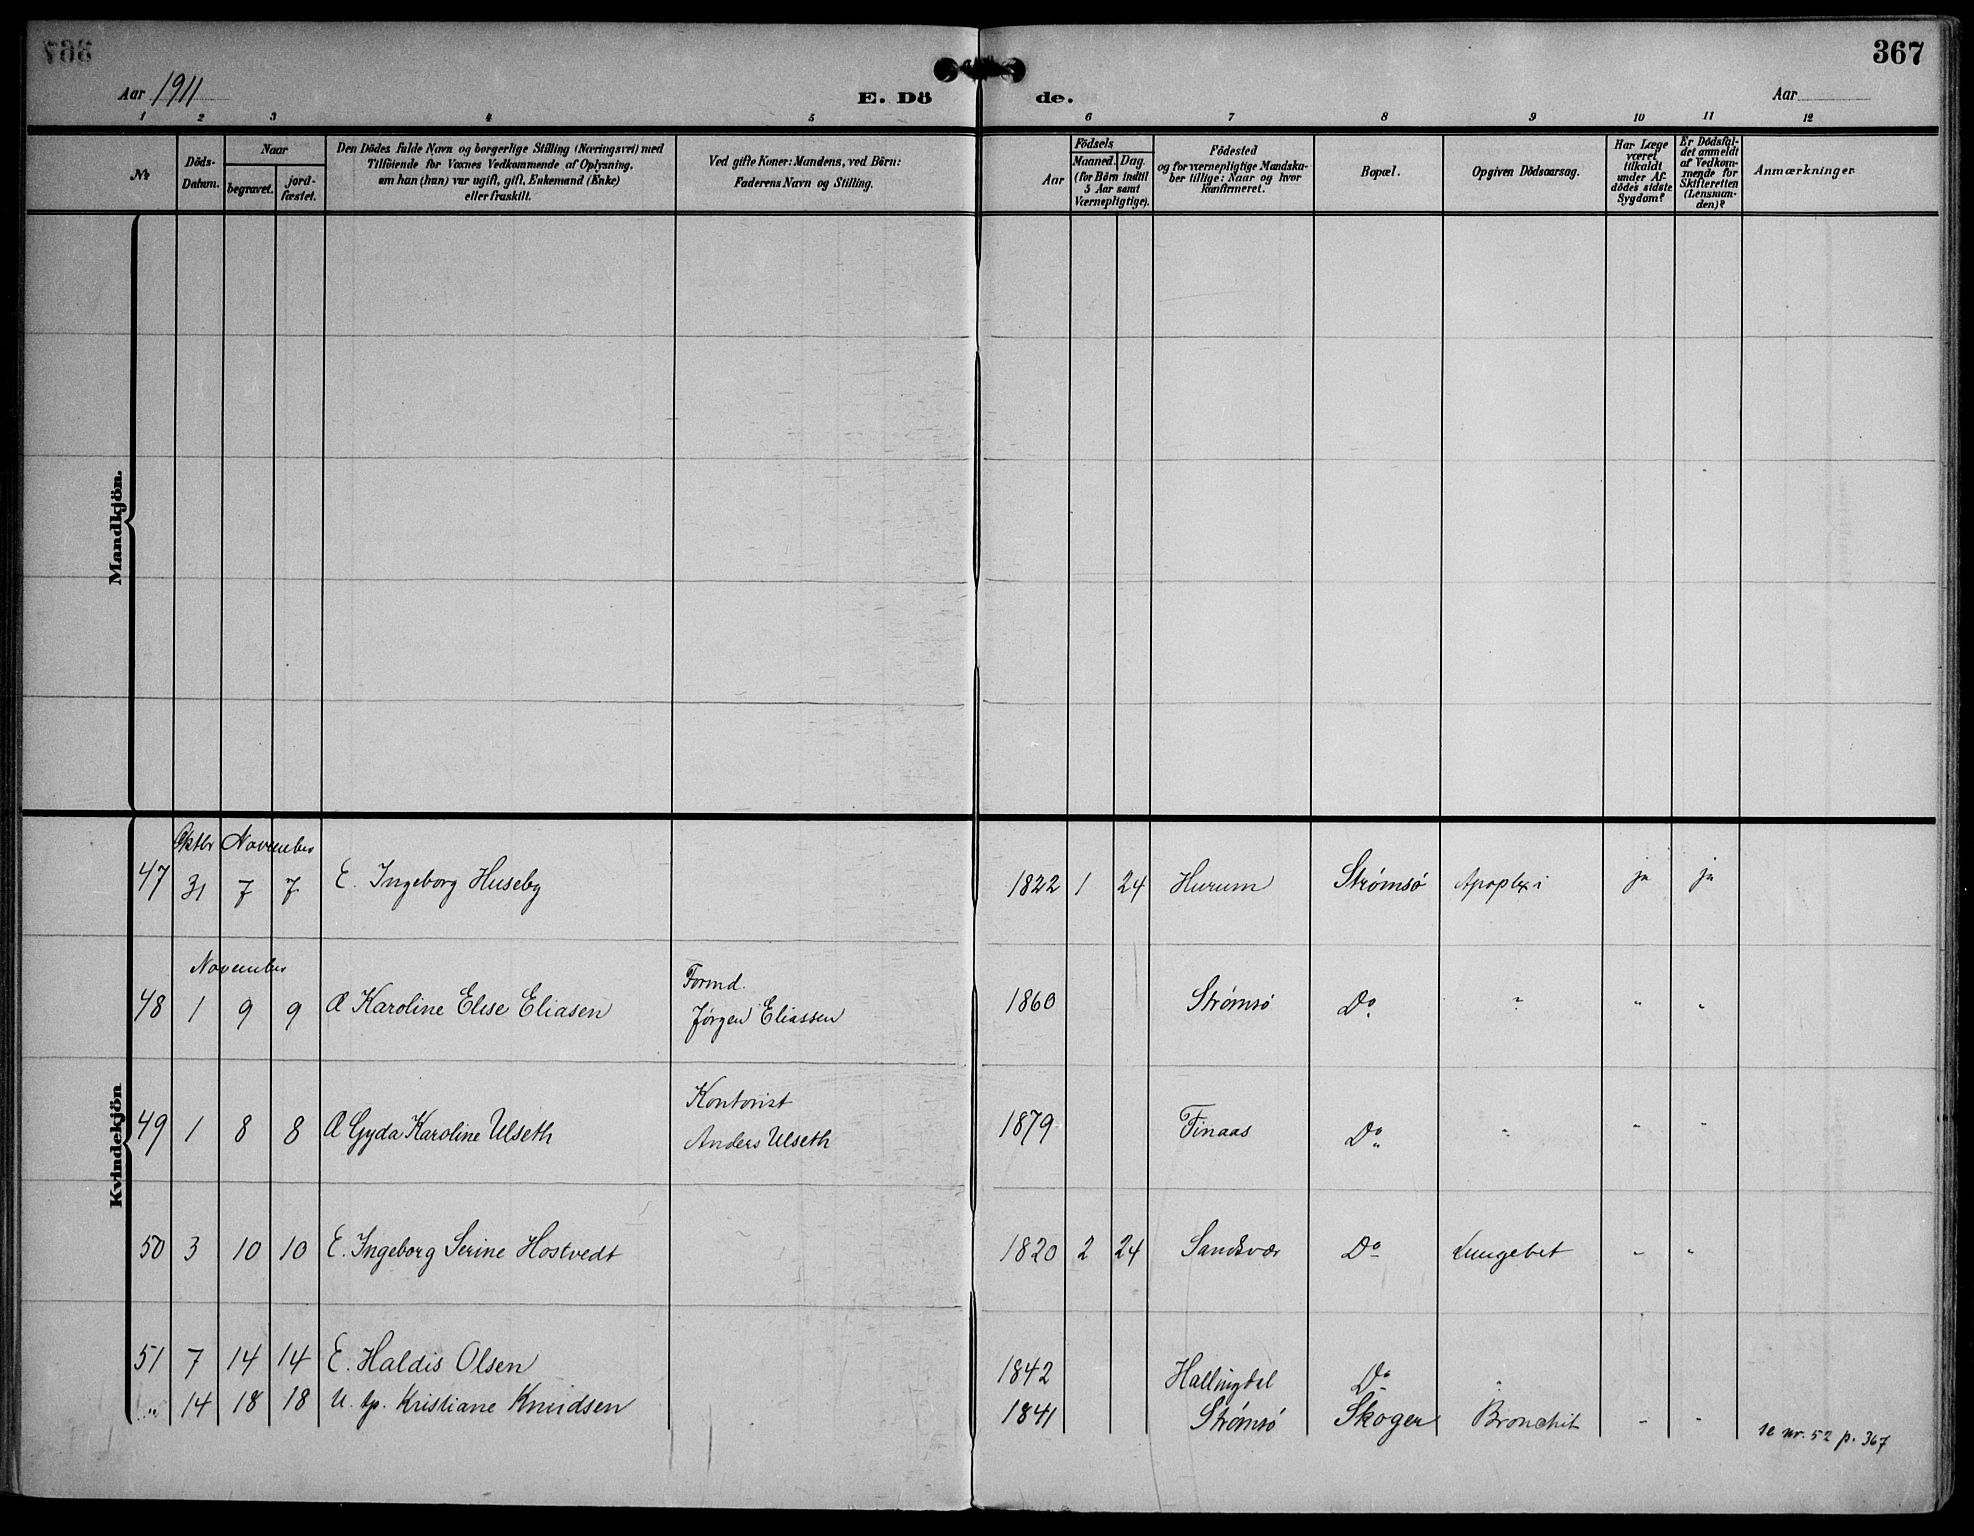 367
Aar 1911
E. Dö de.
Aar
1 2 3 4 5 6 7 8 9 10 11 12
№
Döds-
Datum.
Naar
begravet.
jord-
fæstet.
Den Dödes fulde Navn og borgerlige Stilling (Næringsvei) med
Tilföiende for Voxnes Vedkommende af Oplysning,
om han (hun) var ugift, gift, Enkemand (Enke)
eller fraskilt.
Ved gifte Koner: Mandens, ved Börn:
Faderens Navn og Stilling.
Aar
Födsels
Maaned. Dag.
(for Börn indtil
5 Aar samt
Værnepligtige).
Födested
og for værnepligtige Mandska-
ber tillige: Naar og hvor
konfirmeret.
Bopæl.
Opgiven Dödsaarsag.
Har Læge
været
tilkaldt
under Af-
dödes sidste
Sygdom?
Er Dödsfal-
det anmeldt
af Vedkom-
mende for
Skifteretten
(Lensman-
den)?
Anmærkninger
Mandkjön.
Kvindekjön
Oktbr November
47 31 7 7 E. Ingeborg Huseby 1822 1 24 Hurum Strømsø Apoplexi ja ja
November
Formd.
48 1 9 9 Æ Karoline Elise Eliasen Jørgen Eliassen 1860 Strømsø Do " " "
Kontorist
49 1 8 8 Æ Gyda Karoline Ulseth Anders Ulseth 1879 Finaas Do " " "
50 3 10 10 E. Ingeborg Serine Hostvedt 1820 2 24 Sandsvær Do Lungebet " "
51 7 14 14 E. Haldis Olsen 1842 Hallingdal Do "
14 18 18 U. tp. Kristiane Knudsen 1841 Strømsø Skoger Bronchit " " se nr. 52 p. 367